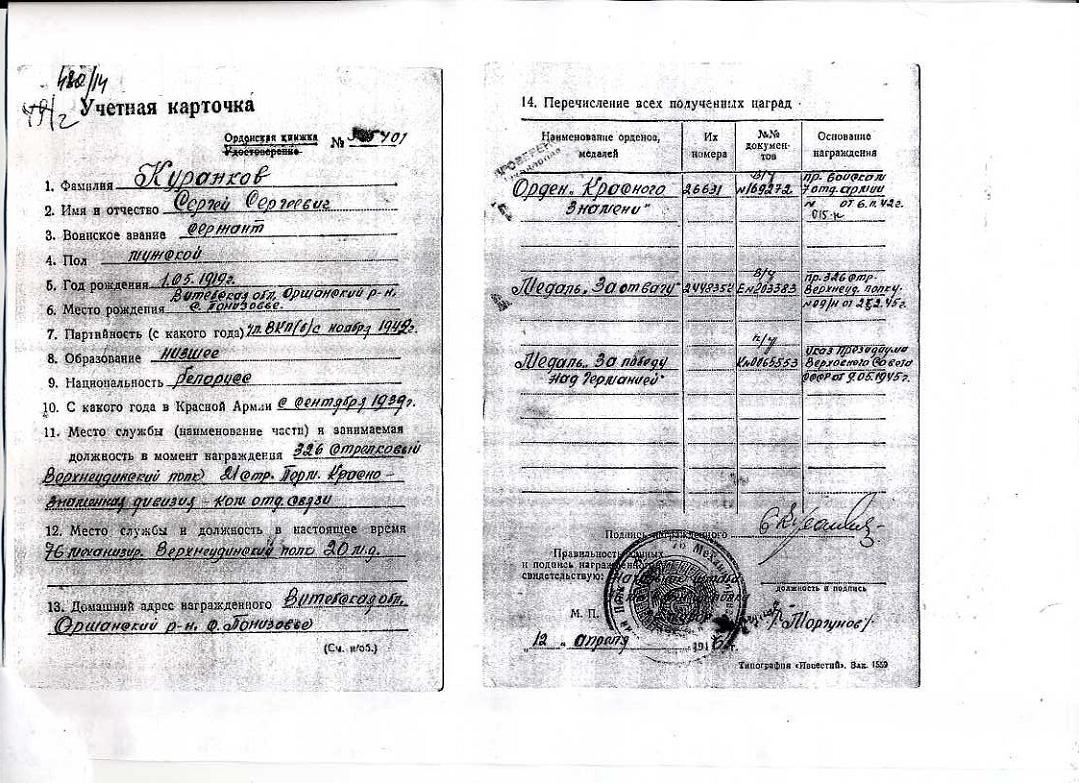 480/14
Учетная карточка
Орденская книжка
Удостоверение
№ 401
1. Фамилия Куранков
2. Имя и отчество Сергей Сергеевич
3. Воинское звание сержант
4. Пол мужской
5. Год рождения 1.05.1919г.
Витебская обл. Оршанский р-н.
6. Место рождения с. Понизовье.
7. Партийность (с какого года) чл. ВКП(б) с ноября 1942г.
8. Образование низшее
9. Национальность белорусс
10. С какого года в Красной Армии с сентября 1939г.
11. Место службы (наименование части) и занимаемая
должность в момент награждения 326 стрелковый
Верхнеудинский полк 21 стр. Перм. Красно-
знаменная дивизия - ком. отд. связи
12. Место службы и должность в настоящее время
76 механизир. Верхнеудинский полк 20 м.д.
13. Домашний адрес награжденного Витебская обл.
Оршанский р-н. с. Понизовье
(См. н/об.)
14. Перечисление всех полученных наград
Наименование орденов, медалей
Их номера
№№ документов
Основание награждения
ПРОВЕРЕНО
Орден „Красного 26631 в/у №169272 пр. войскам 7 отд. армии
Знамени" № 015-н от 6.11.42г.
Медаль „За отвагу" 2448352 в/у Е№203383 Пр. 326 стр. Верхнеуд. полку. №09/н от 25.2.45г.
Медаль „За победу п/у К№0065553 Указ Президиума Верховного Совета
над Германией" СССР от 9.05.1945г.
Подпись награжденного
Правильность данных
и подпись награжденного
свидетельствую: Начальник штаба
должность и подпись
М. П.
/Моргунов/.
„12„ апреля 1946г.
Типография «Известий». Зак. 1559